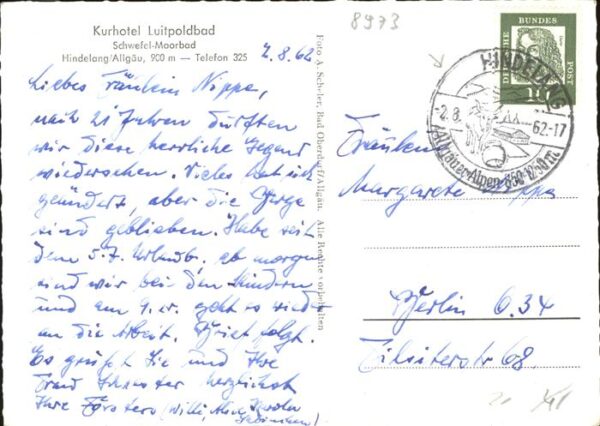 8973
Kurhotel Luitpoldbad
Schwefel-Moorbad
Hindelang/Allgäu, 900 m — Telefon 325
2.8.62
Liebes Fräulein Nippa,
nach 21 Jahren durften
wir diese herrliche Gegend
wiedersehen. Vieles hat sich
geändert, aber die Berge
sind geblieben. Habe seit
dem 5.7. Urlaub, ab morgen
sind wir bei den Kindern
und am 9. er. geht es wieder
an die Arbeit. Brief folgt.
Es grüßt Sie und Ihre
herzlichst
Ihre Försters (Willi,
Foto A. Scheler, Bad Oberdorf/Allgäu. Alle Rechte vorbehalten
DEUTSCHE BUNDES POST
10
HINDELANG
-2.8. 62-17
Allgäuer-Alpen 850-1250 m
Fräulein
Margarete Nippa
Berlin O.34
Tilsiterstr 68.